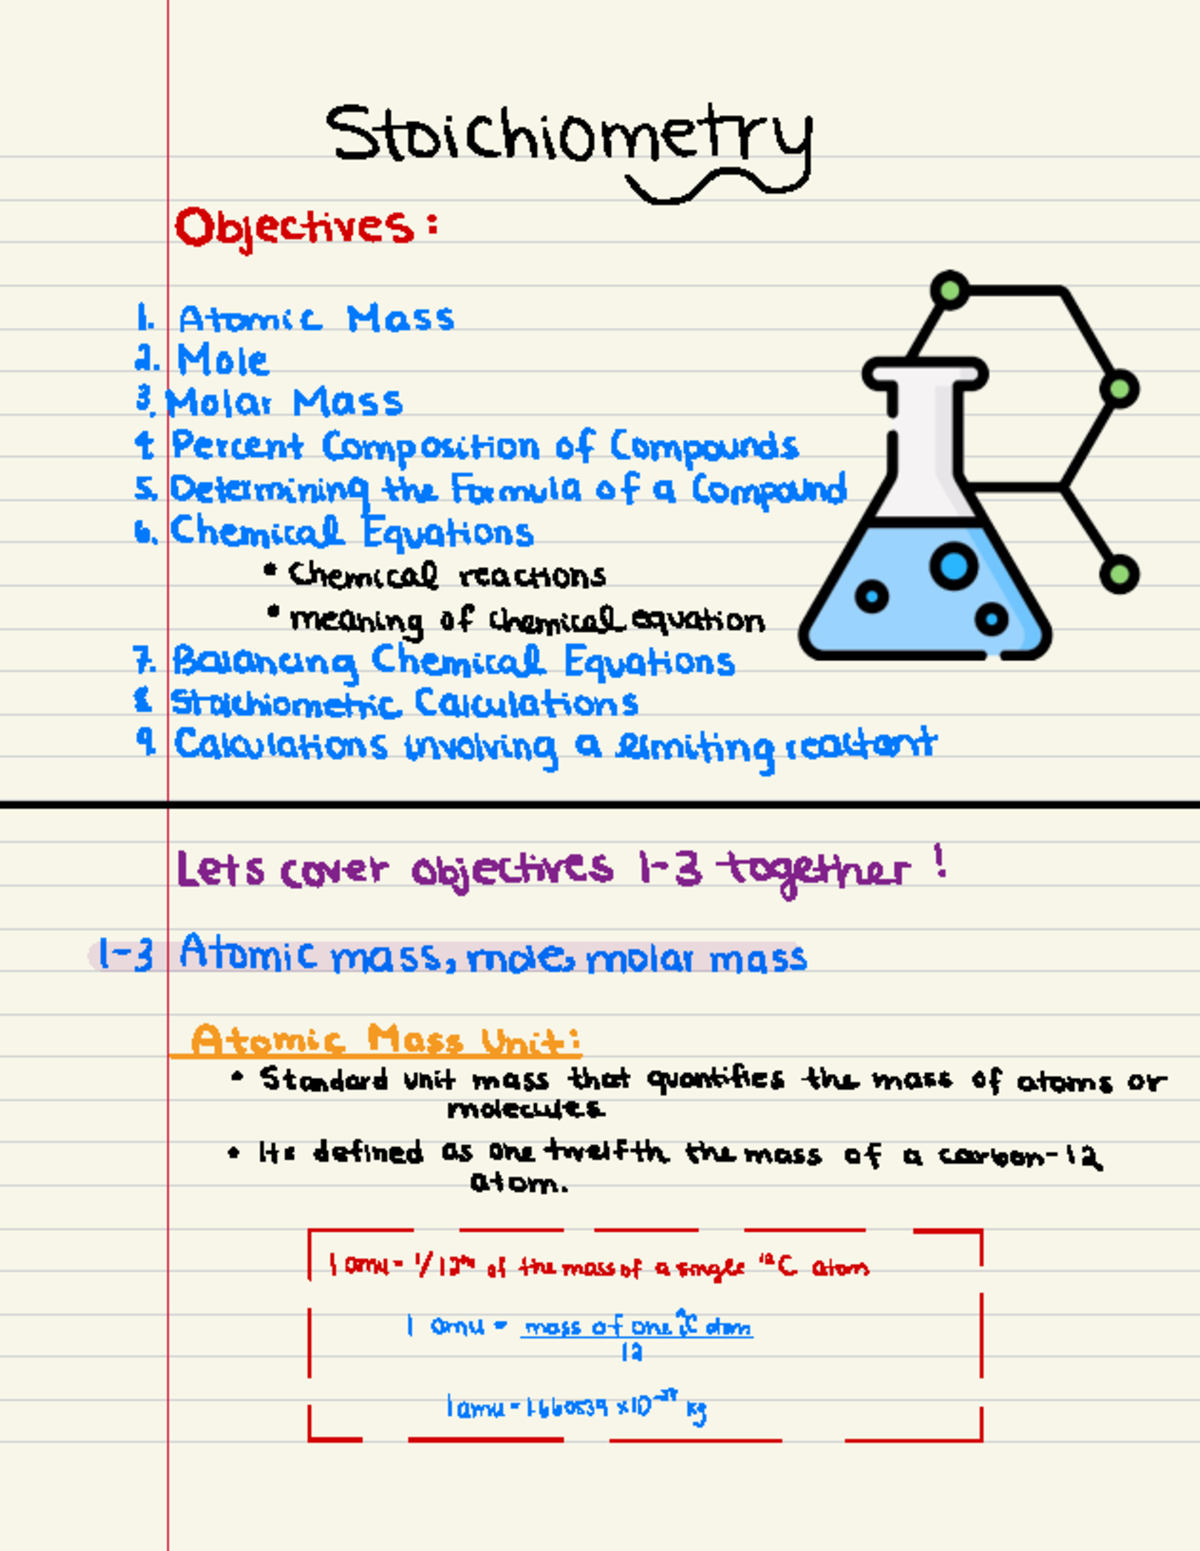 Stoichiometry
Objectives:
1. Atomic Mass
2. Mole
3. Molar Mass
4. Percent Composition of Compounds
5. Determining the Formula of a Compound
6. Chemical Equations
• Chemical reactions
• meaning of chemical equation
7. Balancing Chemical Equations
8. Stoichiometric Calculations
9. Calculations involving a limiting reactant
Lets cover objectives 1-3 together!
1-3 Atomic mass, mole, molar mass
Atomic Mass Unit:
• Standard unit mass that quantifies the mass of atoms or
molecules
• Its defined as one twelfth the mass of a carbon-12
atom.
1 amu = 1/12th of the mass of a single ¹²C atom
1 amu = mass of one ¹²C atom
12
1 amu = 1.660539 ×10⁻²⁷ kg